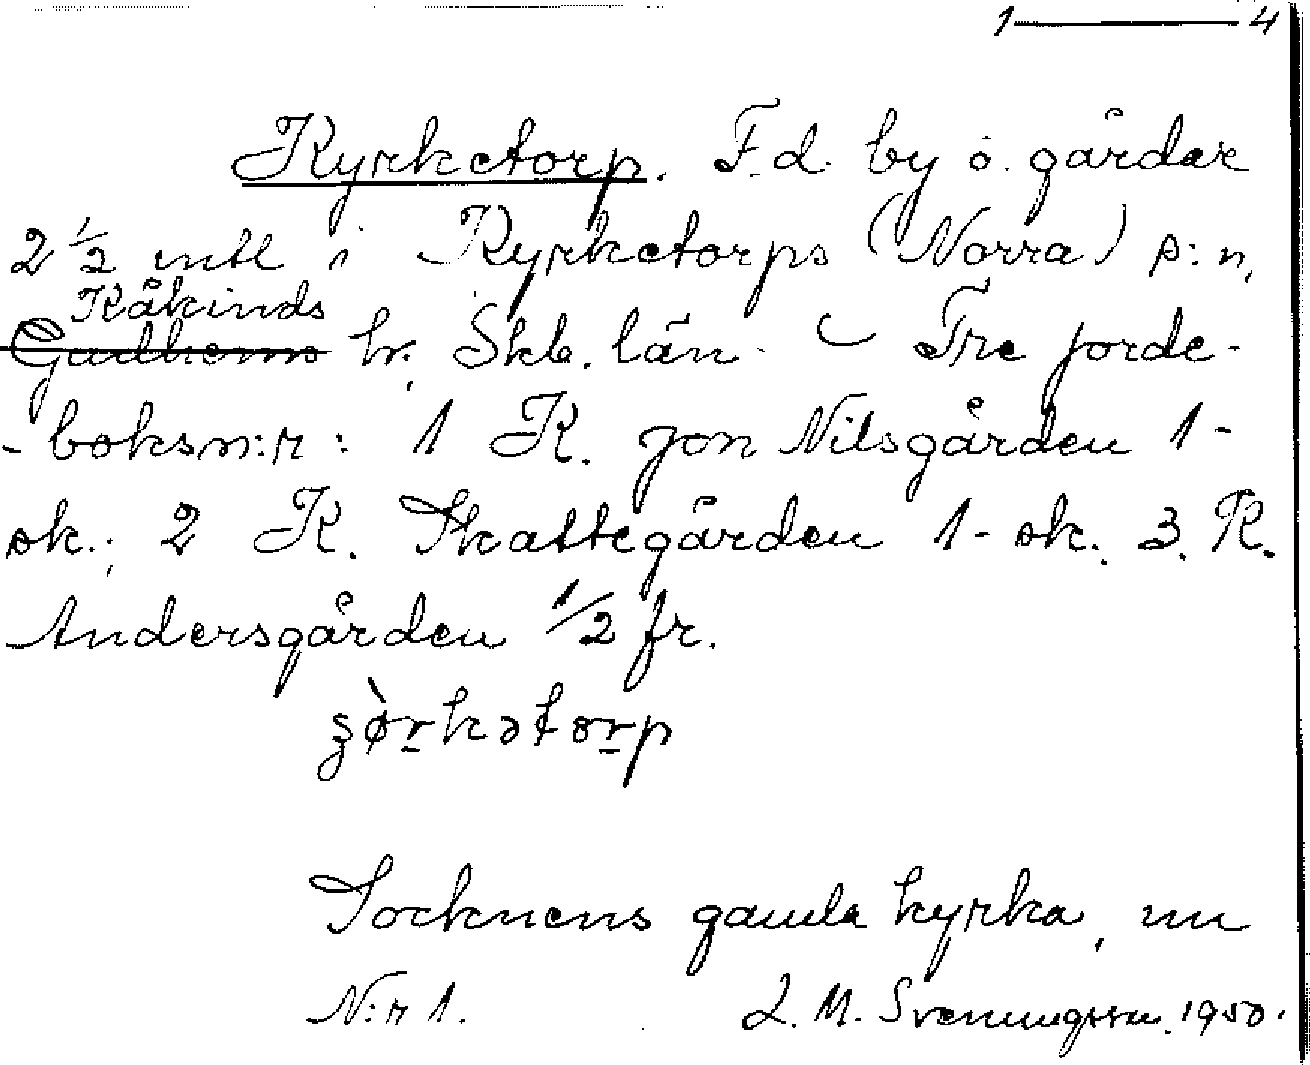 1 — 4
Kyrketorp. F.d. by o. gårdar
2 1/2 mtl i Kyrketorps (Norra) s:n,
Kåkinds
Gudhems hr. Skb. län. — Tre jorde-
-boksn:r: 1 K. Jon Nilsgården 1-
sk.; 2 K. Skattegården 1- sk. 3. R.
Andersgården 1/2 fr.
Socknens gamla kyrka, nu
N:r 1. L. M. Svenungsson 1950.